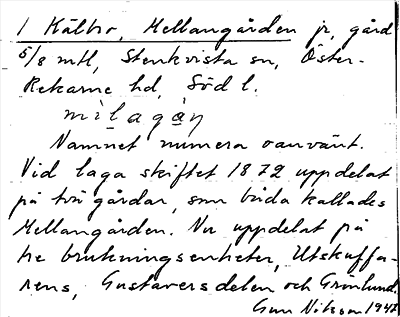 1 Källbo, Mellangården jr, gård
5/8 mtl, Stenkvista sn, Öster-
Rekarne hd, Söd l.
mìlagạ̀ṇ
Namnet numera oanvänt.
Vid laga skiftet 1872 uppdelat
på två gårdar, som båda kallades
Mellangården. Nu uppdelat på
tre brukningsenheter, Utskuffa-
rens, Gustaversdelen och Grönlund.
Gun Nilsson 1947